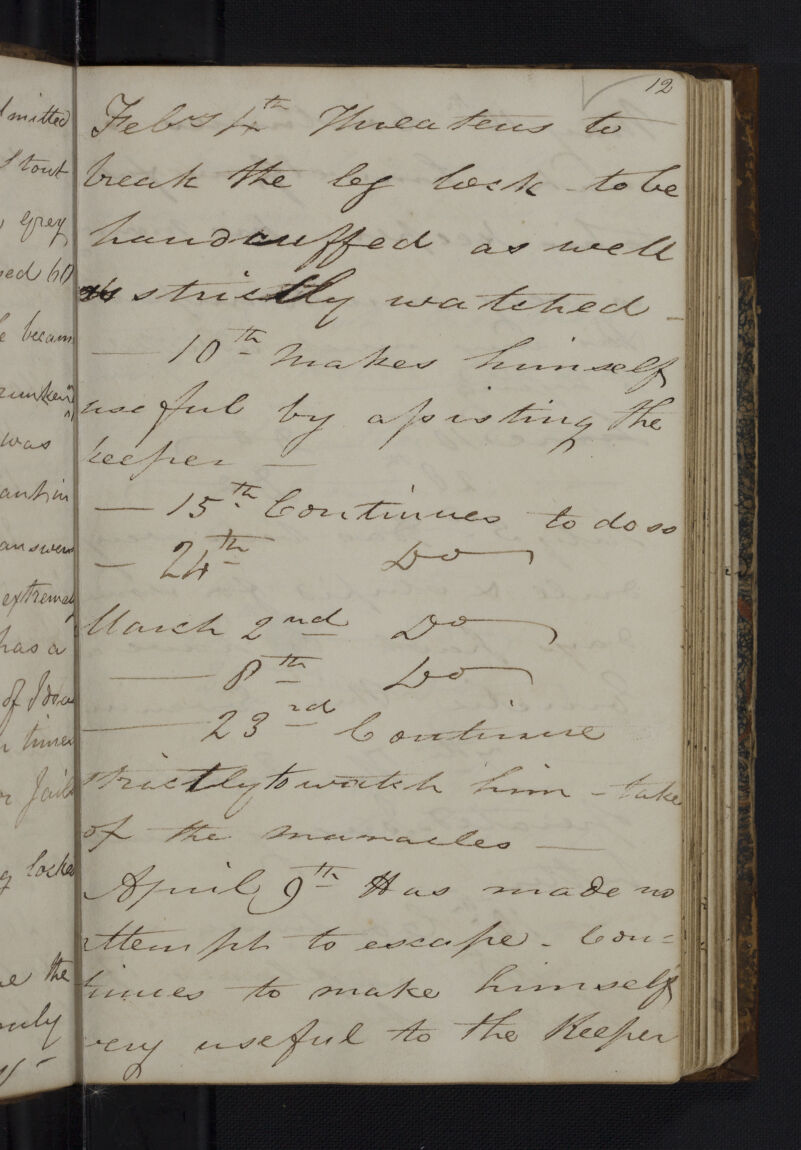 12
Feby 4th Threatens to
break the leg lock - to be
handcuffed as well
as strictly watched -
— 10th Makes himself
useful by assisting the
keeper —
— 15th Continues to do so
— 24th Do
March 2nd Do
— 8th Do
— 23rd Continue
strictly to watch him - take
of the manacles —
April 9th Has made no
attempt to escape - Con=
tinues to make himself
very useful to the Keeper
mitted
Stout
grey
60
becam
was
answers
extremely
has a
of
times
Jail
locked
the